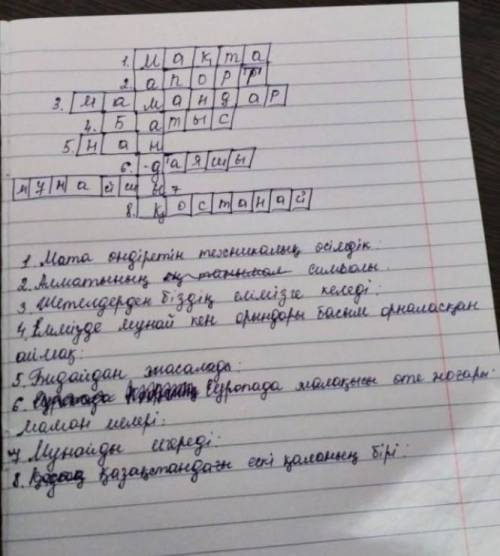 1. мақта
2. апорт
3. мамандар
4. Батыс
5. нан
6. даяшы
мұнайшы 7
8. Қостанай
1. Мата өндіретін техникалық өсімдік:
2. Алматының символы:
3. Шетелдерден біздің елімізге келеді:
4. Елімізде мұнай кен орындары басым орналасқан
аймақ:
5. Бидайдан жасалады:
6. Еуропада малақысы өте жоғары:
маман иелері:
7 Мұнайды игереді:
8. Қазақстандағы ескі қаланың бірі: